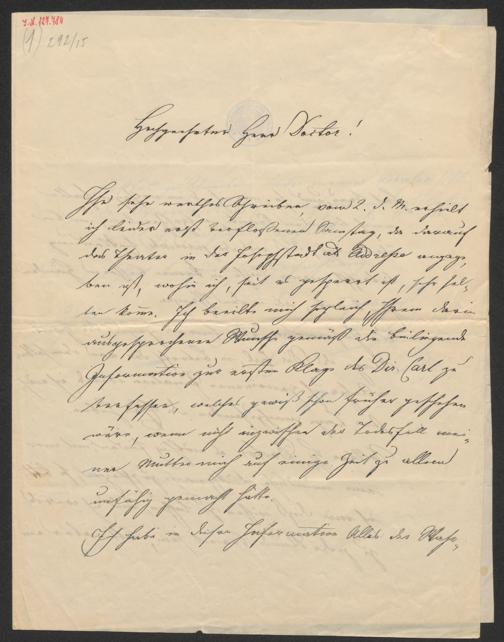 I.N. 129.480
(1) 292/15
Hochgeehrter Herr Doctor!
Ihr sehr werthes Schreiben, vom 2. d. M. erhielt
ich leider erst verflossenen Samstag, da darauf
das Theater in der Josephstadt als Adresse angege-
ben ist, wohin ich, seit es gesperrt ist, sehr sel-
ten komme. Ich beeilte mich sogleich Ihrem darin
ausgesprochenen Wunsche gemäß die beiliegende
Information zur ersten Klage des Dir. Carl zu
verfassen, welches gewiß schon früher geschehen
wäre, wenn nicht inzwischen der Todesfall mei-
ner Mutter mich auf einige Zeit zu allem
unfähig gemacht hätte.
Ich habe in dieser Information Alles der Wahr-